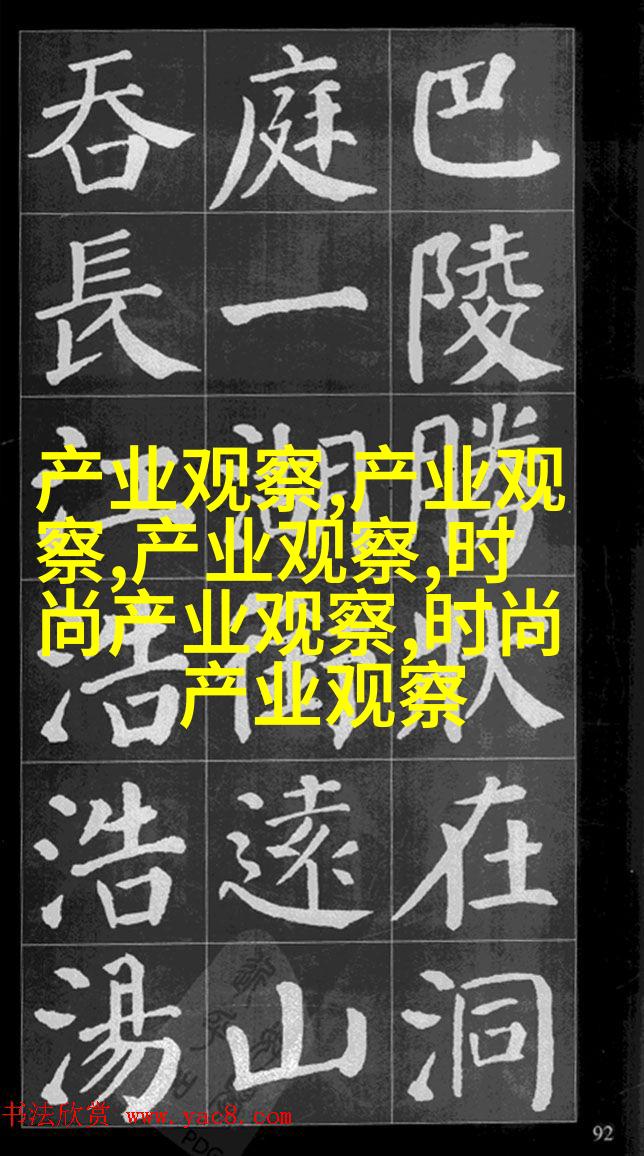 巴陵勝狀在洞
庭一湖遠山
吞長江浩浩湯
产业观察,产业观
察,产业观察,时
尚产业观察,时尚
产业观察
书法欣赏 www.yac8.com
PDG
92